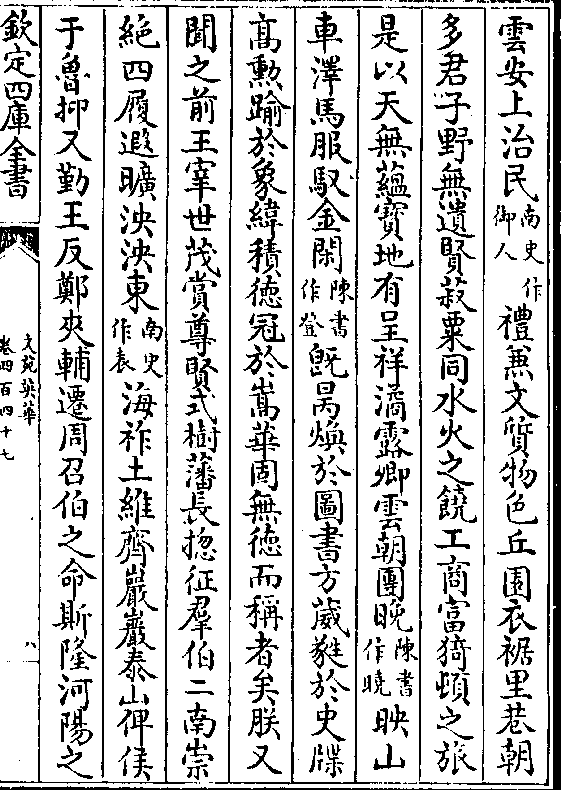 雲安上治民南史作御人禮兼文質物色丘園衣裾里巷朝
多君子野無遺賢菽粟同水火之饒工商富猗頓之旅
是以天無蘊寶地有呈祥潏露卿雲朝團晚陳書作曉映山
車澤馬服馭金閑陳書作登旣景煥於圖書方葳蕤於史牒
髙勲踰於象緯積徳冠於嵩華固無徳而稱者矣朕又
聞之前王宰世茂賞尊賢式樹藩長揔征羣伯二南崇
絶四履遐曠泱泱東南史作表海祚土維齊巖巖泰山俾侯
于魯抑又勤王反鄭夾輔遷周召伯之命斯隆河陽之
欽定四庫全書
文苑英華
卷四百四十七
八